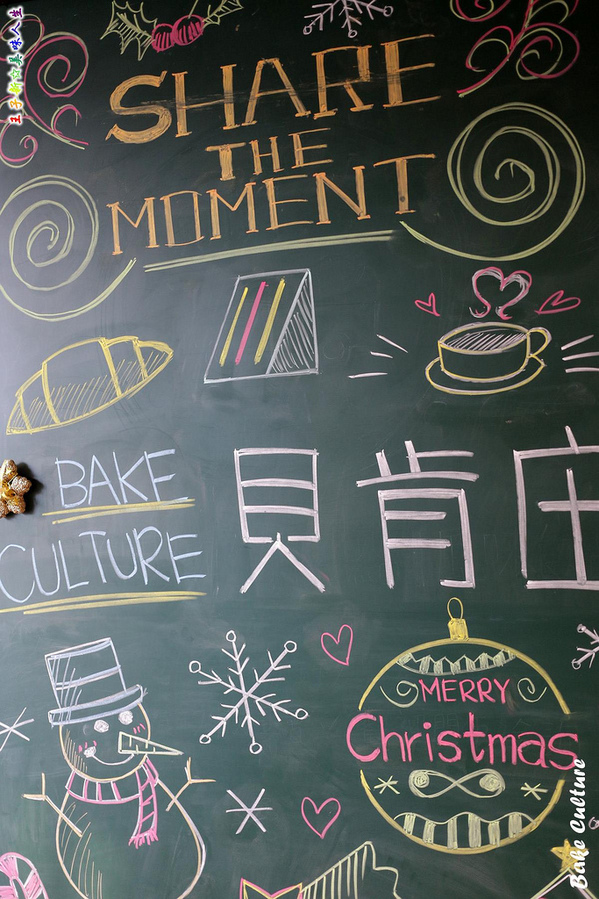 王子妍食美味人生
SHARE
THE
MOMENT
BAKE
CULTURE
貝肯庄
MERRY
Christmas
Bake Culture